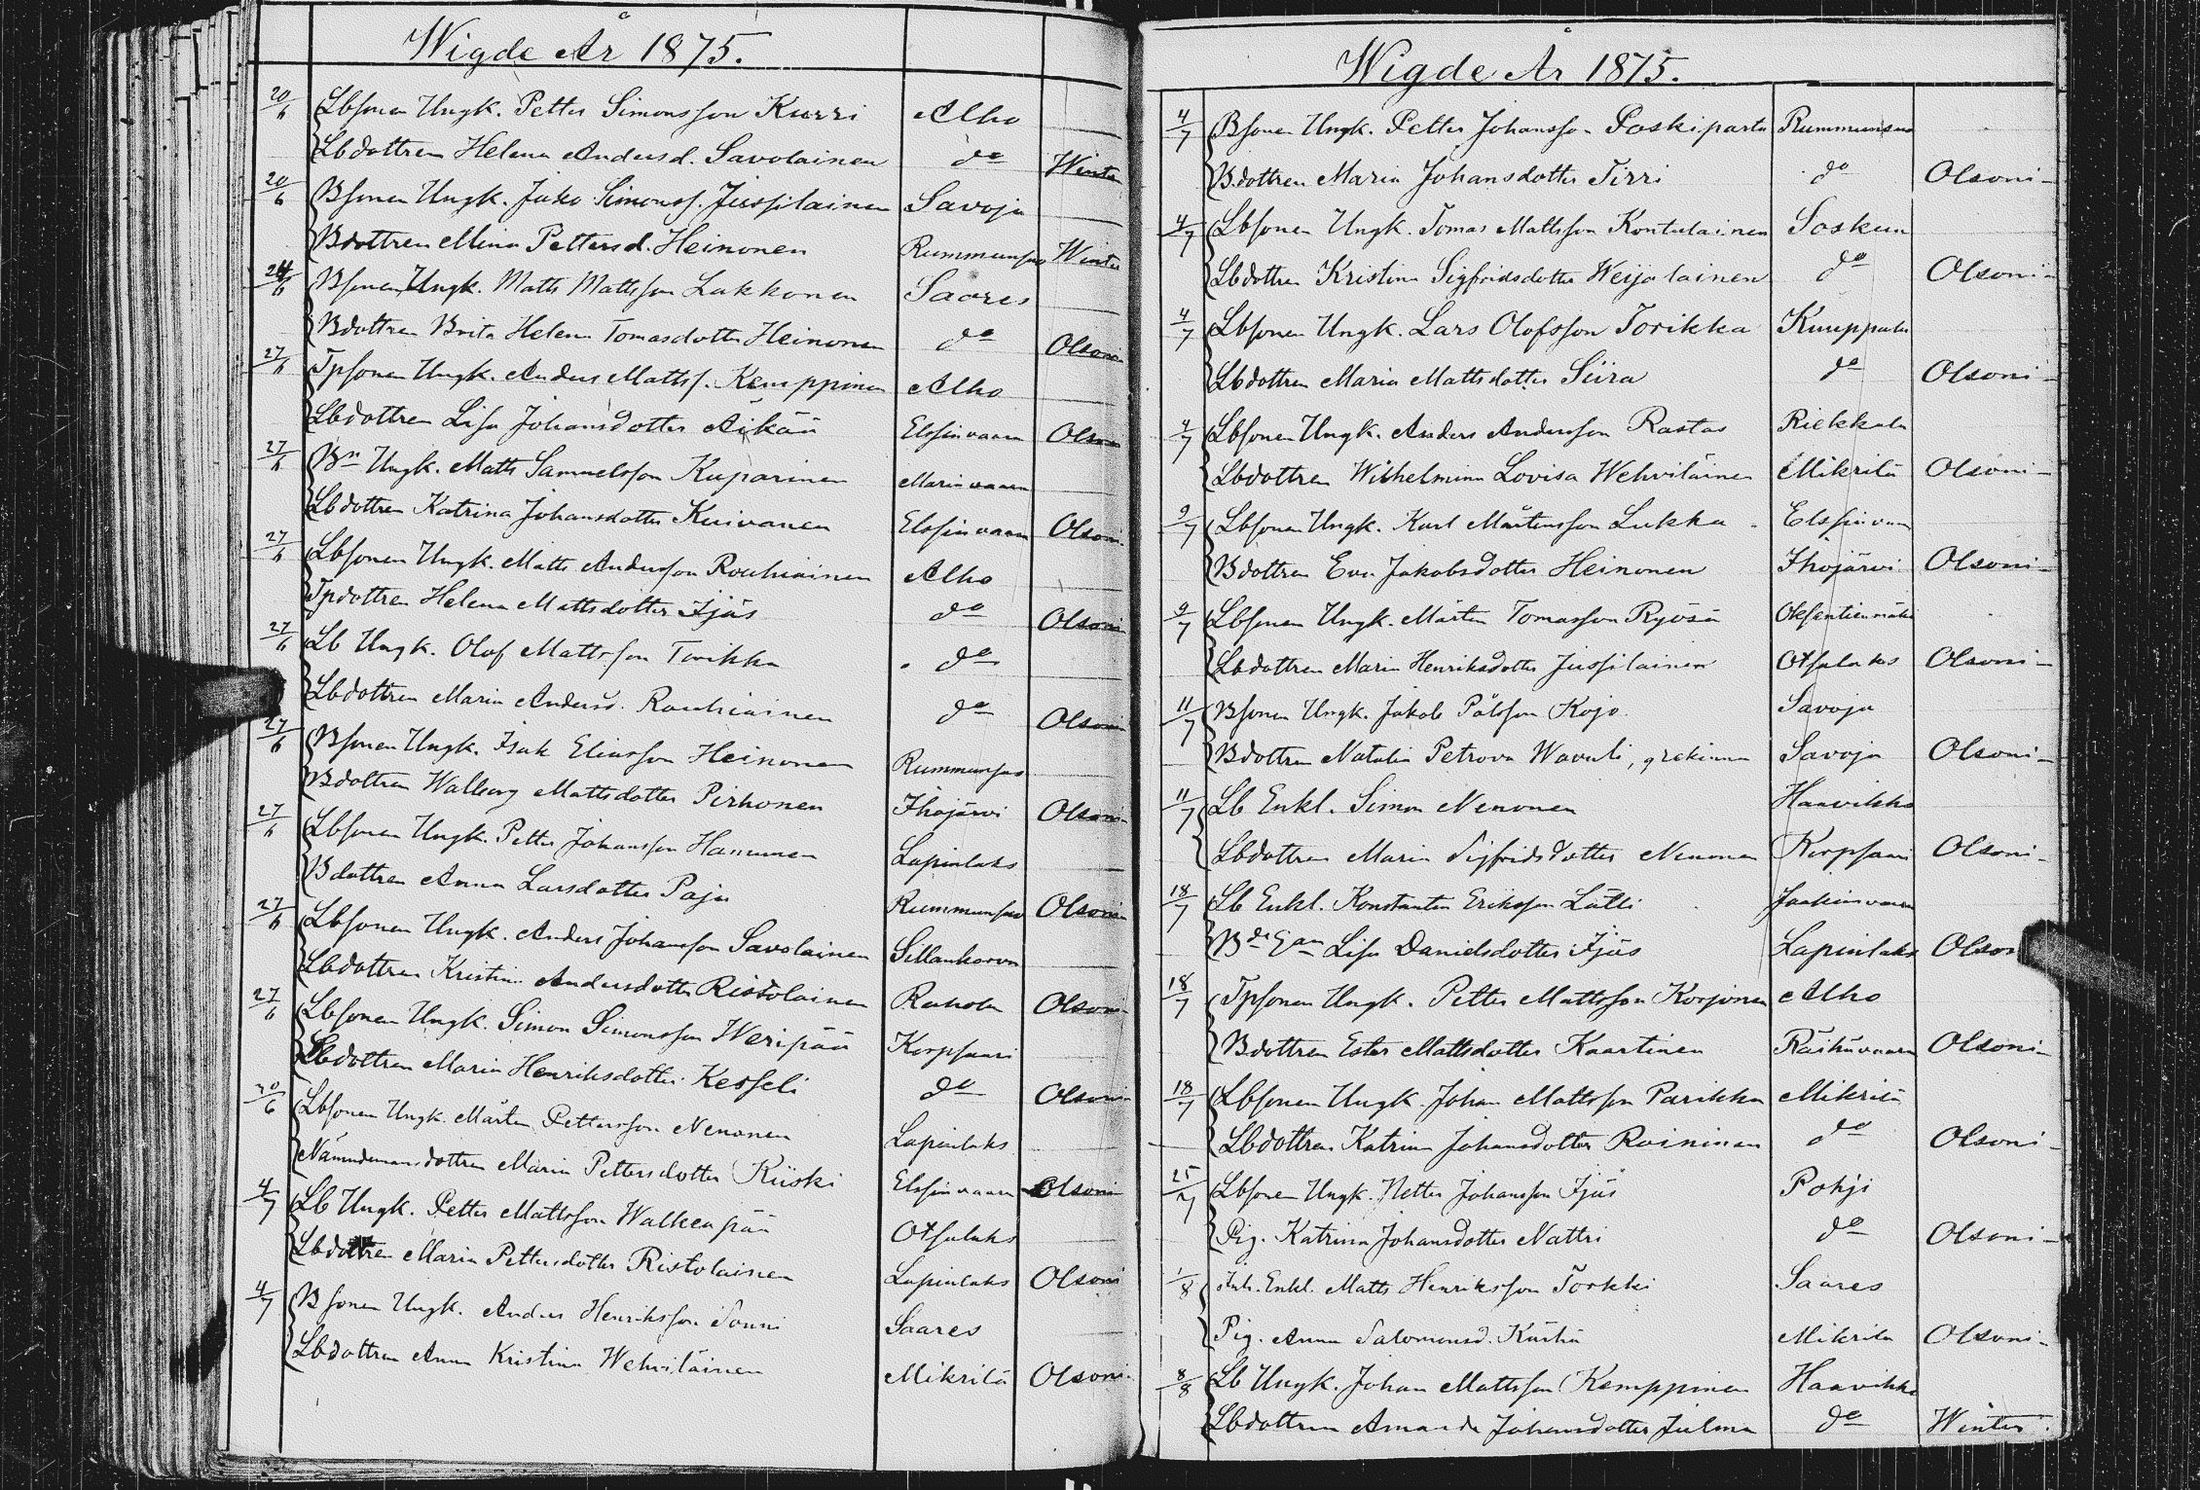 Wigde År 1875.
20/6 Lbsonen Ungk. Petter Simonsson Kurri Alho
Lbdottren Helena Andersd. Savolainen do Winter
20/6 Bsonen Ungk. Jakob Simonss. Jussilainen Savoja
Bdottren Mina Pettersd. Heinonen Rummunsuo Winter
24/6 Bsonen Ungk. Matts Mattsson Lakkonen Saares
Bdottren Brita Helena Tomasdotter Heinonen do Olsoni
27/6 Tpsonen Ungk. Anders Mattss. Kemppinen Alho
Lbdottren Lisa Johansdotter Äikää Elssinvaara Olsoni
27/6 Bn Ungk. Matts Samuelsson Kuparinen Marinvaara
Lbdottren Katrina Johansdotter Kuivanen Elssinvaara Olsoni
27/6 Lbsonen Ungk. Matts Andersson Rouhiainen Alho
Tpdottren Helena Mattsdotter Ijäs do Olsoni
27/6 Lb Ungk. Olof Mattsson Torikka do
Lbdottren Maria Andersd. Rouhiainen do Olsoni
27/6 Bsonen Ungk. Isak Eliasson Heinonen Rummunsuo
Bdottren Walborg Mattsdotter Pirhonen Ihojärvi Olsoni
27/6 Lbsonen Ungk. Petter Johansson Hannunen Lapinlaks
Bdottren Anna Larsdotter Paju Rummunsuo Olsoni
27/6 Lbsonen Ungk. Anders Johansson Savolainen Sillankorva
Lbdottren Kristina Andersdotter Ristolainen Rahola Olsoni
27/6 Lbsonen Ungk. Simon Simonsson Weripää Korpsaari
Lbdottren Maria Henriksdotter Kesseli do Olsoni
30/6 Lbsonen Ungk. Mårten Pettersson Nenonen Lapinlaks
Nämndemansdottren Maria Pettersdotter Kiiski Elssinvaara Olsoni
4/7 Lb Ungk. Petter Mattsson Walkeapää Otsulaks
Lbdottren Maria Pettersdotter Ristolainen Lapinlaks Olsoni
4/7 Bsonen Ungk. Anders Henriksson Sonni Saares
Lbdottren Anna Kristina Wehviläinen Mikrilä Olsoni
Wigde År 1875.
4/7 Bsonen Ungk. Petter Johansson Poskiparta Rummunsuo
Bdottren Maria Johansdotter Tirri do Olsoni
4/7 Lbsonen Ungk. Tomas Mattsson Kontulainen Soskua
Lbdottren Kristina Sigfridsdotter Weijolainen do Olsoni
4/7 Lbsonen Ungk. Lars Olofsson Torikka Kuuppala
Lbdottren Maria Mattsdotter Siira do Olsoni
4/7 Lbsonen Ungk. Anders Andersson Rastas Riekkala
Lbdottren Wilhelmina Lovisa Wehviläinen Mikrilä Olsoni
9/7 Lbsonen Ungk. Karl Mårtensson Lukka Elssinvaara
Bdottren Eva Jakobsdotter Heinonen Ihojärvi Olsoni
9/7 Lbsonen Ungk. Mårten Tomasson Ryösä Oksentienmäki
Lbdottren Maria Henriksdotter Jussilainen Otsulaks Olsoni
11/7 Bsonen Ungk. Jakob Pålsson Kojo Savoja
Bdottren Natalia Petrova Wavuli, grekinna Savoja Olsoni
11/7 Lb Enkl. Simon Nenonen Haavikko
Lbdottren Maria Sigfridsdotter Nenonen Korpsaari Olsoni
18/7 Lb Enkl. Konstantin Eriksson Lätti Jaakinvaara
Lisa Danielsdotter Ijäs Lapinlaks Olsoni
18/7 Tpsonen Ungk. Petter Mattsson Korjonen Alho
Bdottren Ester Mattsdotter Kaartinen Räihävaara Olsoni
18/7 Lbsonen Ungk. Johan Mattsson Parikka Mikrilä
Lbdottren Katrina Johansdotter Roininen do Olsoni
25/7 Lbsonen Ungk. Petter Johansson Ijäs Pohji
Pig. Katrina Johansdotter Nattri do Olsoni
1/8 Inh. Enkl. Matts Henriksson Torkki Saares
Pig. Anna Salomonsd. Kärhä Mikrilä Olsoni
8/8 Lb Ungk. Johan Mattsson Kemppinen Haavikko
Lbdottren Amanda Johansdotter Julma do Winter